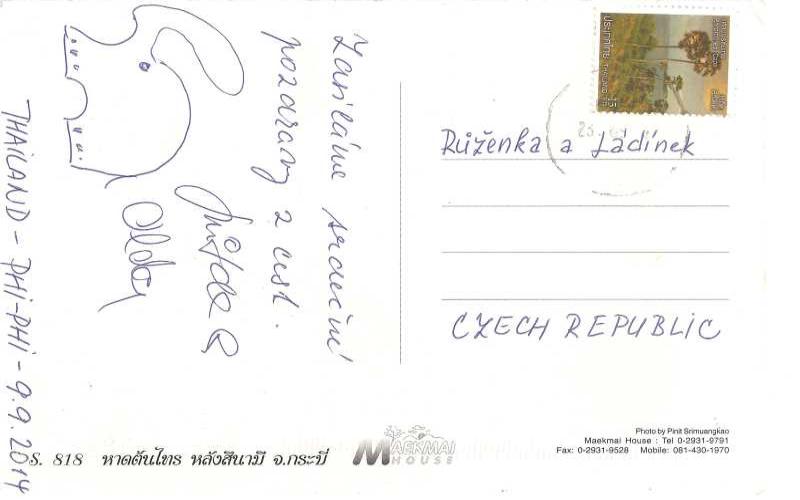 THAILAND - PHI-PHI - 9.9.2014
Zasíláme srdečné
pozdravy z cest.
Růženka a Ládínek
CZECH REPUBLIC
S. 818 หาดต้นไทร หลังสึนามิ จ.กระบี่
MAEKMAI
HOUSE
Photo by Pinit Srimuangkao
Maekmai House : Tel 0-2931-9791
Fax: 0-2931-9528 Mobile: 081-430-1970
ประเทศไทย THAILAND
15